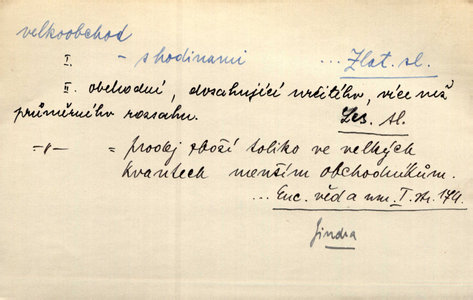 velkoobchod
I. - s hodinami ... Zlat. sl.
II. obchodní, dosahující určitého, více než
průměrného rozsahu. Les. sl.
-〃- = prodej zboží toliko ve velkých
kvantech menším obchodníkům.
... Enc. věd a um. I. str. 174.
Jindra